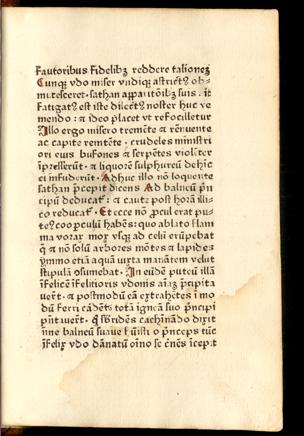 Fautoribus Fidelibꝫ reddere talioneꝫ
Cunqꝫ vdo miser vndiqꝫ astrict⁹ ob-
mutesceret · sathan apparitoribꝫ suis . it
Fatigat⁹ est iste dilect⁹ noster huc ve
niendo : ⁊ ideo placet vt refocilletur
Illo ergo misero tremēte ⁊ rēnuente
ac capite remtēte · crudeles ministri
ori eius bufones ⁊ serpētes violēter
īpresserūt · ⁊ liquorē sulphureū dehīc
ei infuderūt · Adhuc illo nō loquente
sathan p̄cepit dicens Ad balneū p̄n
cipū deducat᷑ : ⁊ caute post horā illi-
co reducat᷑ · Et ecce nō ꝓcul erat pu-
te⁹ cooꝑculū habēs : quo ablato flam
ma vorax mox vsqꝫ ad celū erūpebat
q̄ ⁊ nō solū arbores mōtes ⁊ lapides
ymmo etiā aquā iuxta manātem velut
stipulā ↄsumebat · In eūdē puteū illā
īfelicē īfelicioris vdonis aīaꝫ p̄cipita
uerūt · ⁊ postmodū eā extrahētes ī mo
dū ferri cādētis totā igneā suo p̄ncipi
p̄ntauerūt · Q̄ sbridēs cachīnādo dixit
īne balneū suaue fuisti o p̄nceps tūc
īfelix vdo dānatū oīno se cernēs īcepit